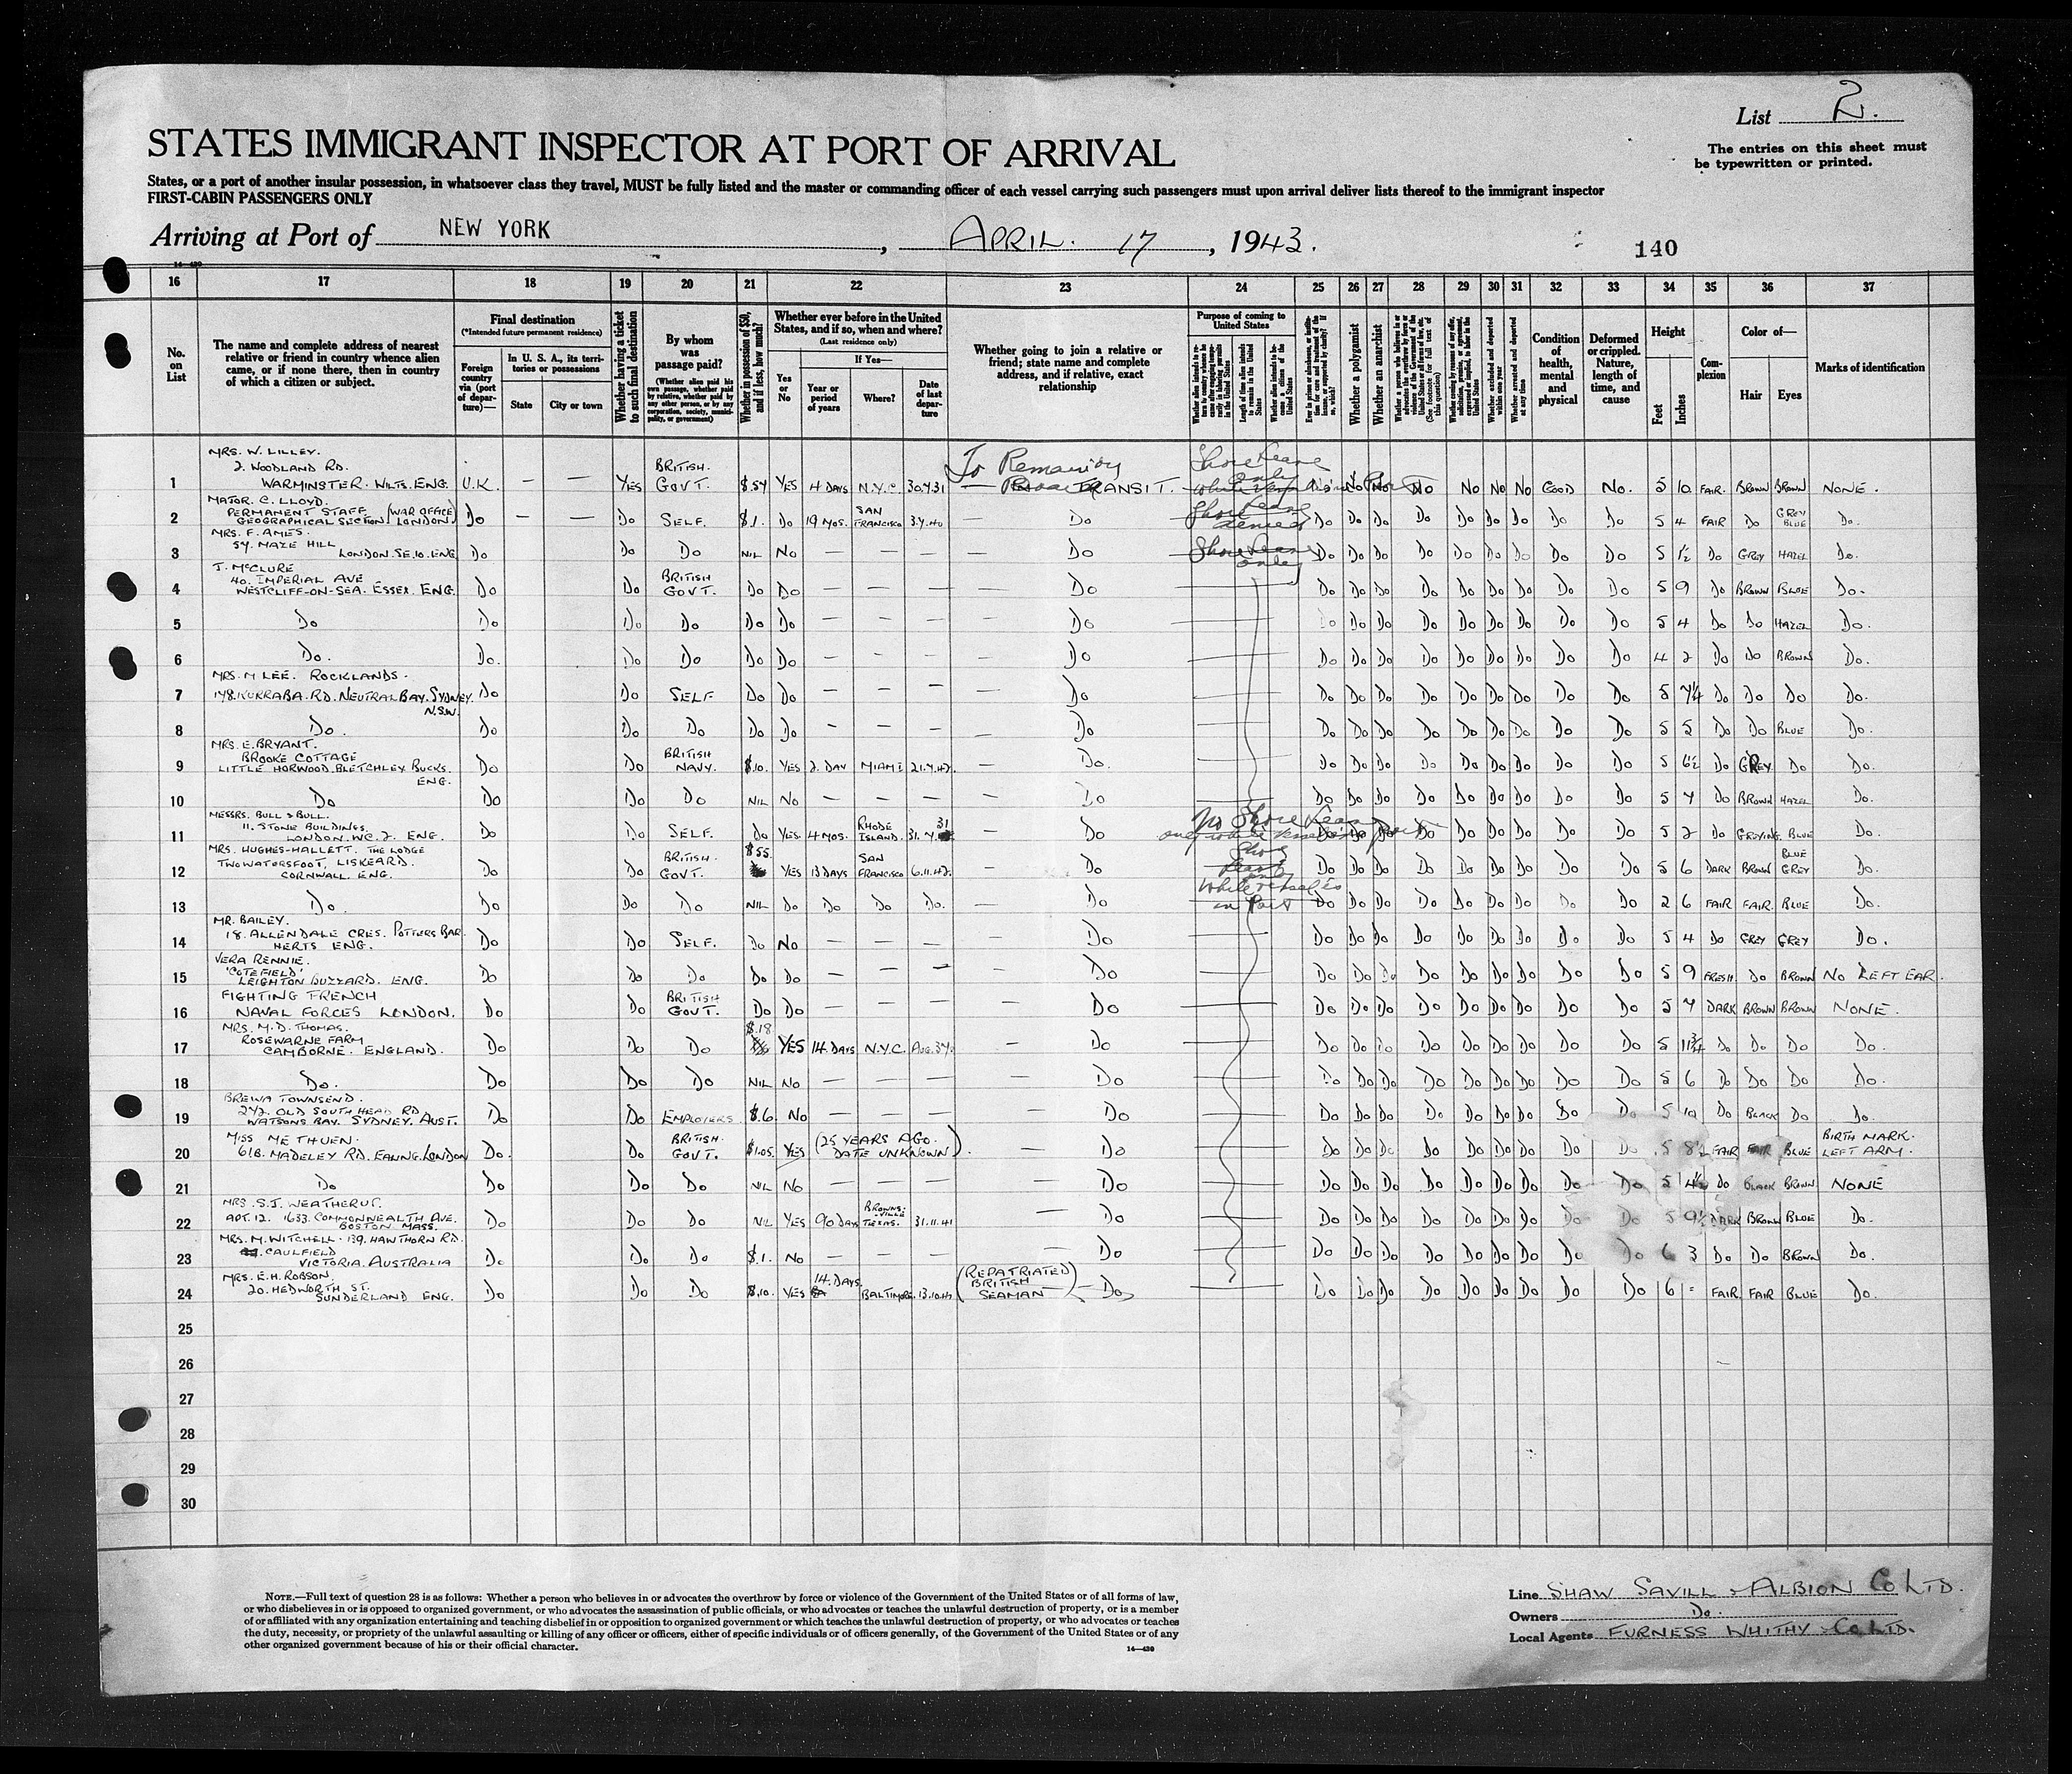 List 2.
The entries on this sheet must
be typewritten or printed.
STATES IMMIGRANT INSPECTOR AT PORT OF ARRIVAL
States, or a port of another insular possession, in whatsoever class they travel, MUST be fully listed and the master or commanding officer of each vessel carrying such passengers must upon arrival deliver lists thereof to the immigrant inspector
FIRST-CABIN PASSENGERS ONLY
Arriving at Port of NEW YORK, APRIL. 17, 1943.
140
14-430
16 17 18 19 20 21 22 23 24 25 26 27 28 29 30 31 32 33 34 35 36 37
No. on List
The name and complete address of nearest relative or friend in country whence alien came, or if none there, then in country of which a citizen or subject.
Final destination
(*Intended future permanent residence)
Foreign country via (port of departure)—
In U. S. A., its territories or possessions
State
City or town
Whether having a ticket to such final destination
By whom was passage paid?
(Whether alien paid his own passage, whether paid by relative, whether paid by any other person, or by any corporation, society, municipality, or government)
Whether in possession of $50, and if less, how much?
Whether ever before in the United States, and if so, when and where?
(Last residence only)
Yes or No
If Yes—
Year or period of years
Where?
Date of last departure
Whether going to join a relative or friend; state name and complete address, and if relative, exact relationship
Purpose of coming to United States
Length of time alien intends to remain in the United States
Whether alien intends to become a citizen of the United States
Whether a polygamist
Whether an anarchist
(See footnote for full text of this question)
Whether excluded and deported within one year
Whether arrested and deported at any time
Condition of health, mental and physical
Deformed or crippled. Nature, length of time, and cause
Height
Feet
Inches
Complexion
Color of—
Hair
Eyes
Marks of identification
To Remain in
Shore Leave only
1 MRS. W. LILLEY. 2. WOODLAND RD. WARMINSTER. WILTS. ENG. U.K. — — YES BRITISH. GOVT. $54 YES 4 DAYS N.Y.C. 30.7.31 — TRANSIT. No No No No No No GOOD No. 5 10 FAIR. BROWN BROWN NONE.
2 MAJOR. C. LLOYD. PERMANENT STAFF (WAR OFFICE) GEOGRAPHICAL SECTION LONDON Do — — Do SELF. $1. Do 19 MOS. SAN FRANCISCO 3.7.40 — Do Shore Leave denied Do Do Do Do Do Do Do Do Do 5 4 FAIR Do GREY BLUE Do.
3 MRS. F. AMES. 54. MAZE HILL LONDON. SE.10. ENG. Do Do Do NIL No — — — — Do Shore Leave only Do Do Do Do Do Do Do Do Do 5 1½ Do GREY HAZEL Do.
4 J. McCLURE 40. IMPERIAL AVE WESTCLIFF-ON-SEA. ESSEX. ENG. Do Do BRITISH GOVT. Do Do — — — — Do Do Do Do Do Do Do Do Do Do 5 9 Do BROWN BLUE Do.
5 Do Do Do Do Do Do — — — — Do Do Do Do Do Do Do Do Do Do 5 4 Do Do HAZEL Do.
6 Do. Do. Do Do Do Do — — — — Do Do Do Do Do Do Do Do Do Do 4 2 Do Do BROWN Do.
7 MRS. M LEE. ROCKLANDS. 178. KURRABA. RD. NEUTRAL BAY. SYDNEY. N.S.W. Do Do SELF Do Do — — — — Do Do Do Do Do Do Do Do Do Do 5 7¼ Do Do Do Do.
8 Do. Do Do Do Do Do — — — — Do Do Do Do Do Do Do Do Do Do 5 5 Do Do BLUE Do.
9 MRS. E. BRYANT. BROOKE COTTAGE LITTLE HORWOOD. BLETCHLEY. BUCKS. ENG. Do Do BRITISH NAVY. $10. YES 2. DAY MIAMI 21.7.42. — Do. Do Do Do Do Do Do Do Do Do 5 6½ Do GREY Do Do.
10 Do Do Do Do NIL No — — — — Do Do Do Do Do Do Do Do Do Do 5 7 Do BROWN HAZEL Do.
11 MESSRS. BULL & BULL. 11. STONE BUILDINGS. LONDON. WC.2. ENG. Do Do SELF. Do YES 4 MOS. RHODE ISLAND. 31.7.31 — Do No Shore Leave only while vessel in port Do Do Do Do Do Do 5 2 Do GREYING BLUE Do.
12 MRS. HUGHES-HALLETT. THE LODGE TWOWATERSFOOT, LISKEARD. CORNWALL. ENG. Do Do BRITISH. GOVT. $55 YES 13 DAYS SAN FRANCISCO 6.11.42. — Do Shore Leave only while vessel is in Port Do Do Do Do Do Do Do Do Do 5 6 DARK BROWN BLUE GREY Do.
13 Do. Do Do Do NIL Do Do Do Do. — Do Do Do Do Do Do Do Do Do Do 2 6 FAIR FAIR. BLUE Do.
14 MR. BAILEY. 18. ALLENDALE CRES. POTTERS BAR HERTS ENG. Do Do SELF. Do No — — — — Do Do Do Do Do Do Do Do Do Do 5 4 Do GREY GREY Do.
15 VERA RENNIE. 'COTEFIELD' LEIGHTON BUZZARD. ENG. Do Do Do Do Do — — — — Do Do Do Do Do Do Do Do Do Do 5 9 FRESH Do BROWN NO LEFT EAR.
16 FIGHTING FRENCH NAVAL FORCES LONDON. Do Do BRITISH GOVT. Do Do — — — — Do Do Do Do Do Do Do Do Do Do 5 7 DARK BROWN BROWN NONE.
17 MRS. M. D. THOMAS. ROSEWARNE FARM CAMBORNE. ENGLAND. Do Do Do $.18 YES 14. DAYS N.Y.C. AUG. 37. — Do Do Do Do Do Do Do Do Do Do 5 11¾ Do Do Do Do.
18 Do. Do Do Do NIL No — — — — Do Do Do Do Do Do Do Do Do Do 5 6 Do Do Do Do.
19 TOWNSEND. 242. OLD SOUTH HEAD RD WATSONS BAY. SYDNEY. AUST. Do Do EMPLOYERS. $.6. No — — — — Do Do Do Do Do Do Do Do Do Do 5 10 Do BLACK Do Do.
20 MISS METHUEN. 61B. MADELEY RD. EALING. LONDON Do. Do BRITISH. GOVT. $1.05. YES (25 YEARS AGO. DATE UNKNOWN). — Do Do Do Do Do Do Do Do Do Do 5 8½ FAIR FAIR BLUE BIRTH MARK. LEFT ARM.
21 Do Do Do Do NIL No — — — — Do Do Do Do Do Do Do Do Do Do 5 4½ Do BLACK BROWN NONE
22 MRS. S.J. WEATHERUP. APT. 12. 1633. COMMONWEALTH AVE. BOSTON. MASS. Do Do Do NIL YES 90 DAYS BROWNSVILLE TEXAS. 31.11.41 — Do Do Do Do Do Do Do Do Do Do 5 9½ DARK BROWN BLUE Do.
23 MRS. M. WITCHELL. 139. HAWTHORN RD. CAULFIELD VICTORIA. AUSTRALIA Do Do Do $.1. No — — — — Do Do Do Do Do Do Do Do Do Do 6 3 Do Do BROWN Do.
24 MRS. E.H. ROBSON. 20. HEDWORTH ST. SUNDERLAND ENG. Do Do Do $.10. YES 14. DAYS BALTIMORE. (REPATRIATED BRITISH SEAMAN) — Do Do Do Do Do Do Do Do Do Do 6 - FAIR. FAIR BLUE Do.
25
26
27
28
29
30
NOTE.—Full text of question 28 is as follows: Whether a person who believes in or advocates the overthrow by force or violence of the Government of the United States or of all forms of law,
or who disbelieves in or is opposed to organized government, or who advocates the assassination of public officials, or who advocates or teaches the unlawful destruction of property, or is a member
of or affiliated with any organization entertaining and teaching disbelief in or opposition to organized government or which teaches the unlawful destruction of property, or who advocates or teaches
the duty, necessity, or propriety of the unlawful assaulting or killing of any officer or officers, either of specific individuals or of officers generally, of the Government of the United States or of any
other organized government because of his or their official character.
14—430
Line SHAW SAVILL & ALBION Co LTD.
Owners Do.
Local Agents FURNESS WHITHY & Co LTD.